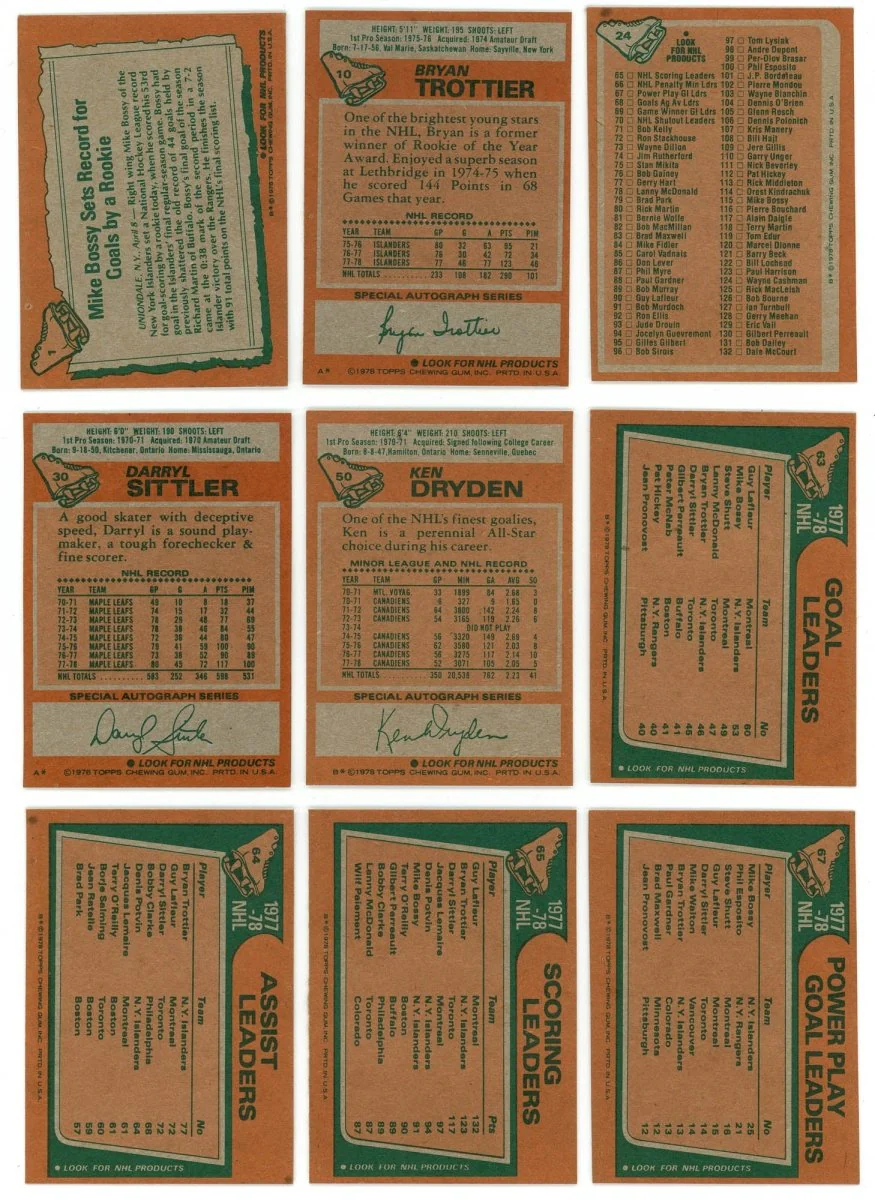 1
Mike Bossy Sets Record for
Goals by a Rookie
UNIONDALE, N.Y., April 8 — Right wing Mike Bossy of the
New York Islanders set a National Hockey League record
for goal-scoring by a rookie today, when he scored his 53rd
goal in the Islanders' final regular-season game. Bossy had
previously shattered the old record of 44 goals held by
Richard Martin of Buffalo. Bossy's final goal of the season
came at the 0:38 mark of the second period in a 7-2
Islander victory over the Rangers. He finishes the season
with 91 total points on the NHL's final scoring list.
● LOOK FOR NHL PRODUCTS
B* ©1978 TOPPS CHEWING GUM, INC. PRTD. IN U.S.A.
HEIGHT: 5'11" WEIGHT: 195 SHOOTS: LEFT
1st Pro Season: 1975-76 Acquired: 1974 Amateur Draft
Born: 7-17-56, Val Marie, Saskatchewan Home: Sayville, New York
10
BRYAN
TROTTIER
One of the brightest young stars
in the NHL, Bryan is a former
winner of Rookie of the Year
Award. Enjoyed a superb season
at Lethbridge in 1974-75 when
he scored 144 Points in 68
Games that year.
NHL RECORD
YEAR TEAM GP G A PTS PIM
75-76 ISLANDERS 80 32 63 95 21
76-77 ISLANDERS 76 30 42 72 34
77-78 ISLANDERS 77 46 77 123 46
NHL TOTALS 233 108 182 290 101
SPECIAL AUTOGRAPH SERIES
Bryan Trottier
● LOOK FOR NHL PRODUCTS
A* ©1978 TOPPS CHEWING GUM, INC. PRTD. IN U.S.A.
24
● LOOK
FOR NHL
PRODUCTS
65 □ NHL Scoring Leaders
66 □ NHL Penalty Min Ldrs
67 □ Power Play Gl Ldrs
68 □ Goals Ag Av Ldrs
69 □ Game Winner Gl Ldrs
70 □ NHL Shutout Leaders
71 □ Bob Kelly
72 □ Ron Stackhouse
73 □ Wayne Dillon
74 □ Jim Rutherford
75 □ Stan Mikita
76 □ Bob Gainey
77 □ Gerry Hart
78 □ Lanny McDonald
79 □ Brad Park
80 □ Rick Martin
81 □ Bernie Wolfe
82 □ Bob MacMillan
83 □ Brad Maxwell
84 □ Mike Fidler
85 □ Carol Vadnais
86 □ Don Lever
87 □ Phil Myre
88 □ Paul Gardner
89 □ Bob Murray
90 □ Guy Lafleur
91 □ Bob Murdoch
92 □ Ron Ellis
93 □ Jude Drouin
94 □ Jocelyn Guevremont
95 □ Gilles Gilbert
96 □ Bob Sirois
97 □ Tom Lysiak
98 □ Andre Dupont
99 □ Per-Olov Brasar
100 □ Phil Esposito
101 □ J.P. Bordeleau
102 □ Pierre Mondou
103 □ Wayne Bianchin
104 □ Dennis O'Brien
105 □ Glenn Resch
106 □ Dennis Polonich
107 □ Kris Manery
108 □ Bill Hajt
109 □ Jere Gillis
110 □ Garry Unger
111 □ Nick Beverley
112 □ Pat Hickey
113 □ Rick Middleton
114 □ Orest Kindrachuk
115 □ Mike Bossy
116 □ Pierre Bouchard
117 □ Alain Daigle
118 □ Terry Martin
119 □ Tom Edur
120 □ Marcel Dionne
121 □ Barry Beck
122 □ Bill Lochead
123 □ Paul Harrison
124 □ Wayne Cashman
125 □ Rick MacLeish
126 □ Bob Bourne
127 □ Ian Turnbull
128 □ Gerry Meehan
129 □ Eric Vail
130 □ Gilbert Perreault
131 □ Bob Dailey
132 □ Dale McCourt
B* ©1978 TOPPS CHEWING GUM, INC. PRTD. IN U.S.A.
HEIGHT: 6'0" WEIGHT: 190 SHOOTS: LEFT
1st Pro Season: 1970-71 Acquired: 1970 Amateur Draft
Born: 9-18-50, Kitchener, Ontario Home: Mississauga, Ontario
30
DARRYL
SITTLER
A good skater with deceptive
speed, Darryl is a sound play-
maker, a tough forechecker &
fine scorer.
NHL RECORD
YEAR TEAM GP G A PTS PIM
70-71 MAPLE LEAFS 49 10 8 18 37
71-72 MAPLE LEAFS 74 15 17 32 44
72-73 MAPLE LEAFS 78 29 48 77 69
73-74 MAPLE LEAFS 78 38 46 84 55
74-75 MAPLE LEAFS 72 36 44 80 47
75-76 MAPLE LEAFS 79 41 59 100 90
76-77 MAPLE LEAFS 73 38 52 90 89
77-78 MAPLE LEAFS 80 45 72 117 100
NHL TOTALS 583 252 346 598 531
SPECIAL AUTOGRAPH SERIES
Darryl Sittler
● LOOK FOR NHL PRODUCTS
A* ©1978 TOPPS CHEWING GUM, INC. PRTD. IN U.S.A.
HEIGHT: 6'4" WEIGHT: 210 SHOOTS: LEFT
1st Pro Season: 1970-71 Acquired: Signed following College Career
Born: 8-8-47, Hamilton, Ontario Home: Senneville, Quebec
50
KEN
DRYDEN
One of the NHL's finest goalies,
Ken is a perennial All-Star
choice during his career.
MINOR LEAGUE AND NHL RECORD
YEAR TEAM GP MIN GA AVG SO
70-71 MTL. VOYAG. 33 1899 84 2.68 3
70-71 CANADIENS 6 327 9 1.65 0
71-72 CANADIENS 64 3800 142 2.24 8
72-73 CANADIENS 54 3165 119 2.26 6
73-74 DID NOT PLAY
74-75 CANADIENS 56 3320 149 2.69 4
75-76 CANADIENS 62 3580 121 2.03 8
76-77 CANADIENS 56 3275 117 2.14 10
77-78 CANADIENS 52 3071 105 2.05 5
NHL TOTALS 350 20,538 762 2.23 41
SPECIAL AUTOGRAPH SERIES
Ken Dryden
● LOOK FOR NHL PRODUCTS
B* ©1978 TOPPS CHEWING GUM, INC. PRTD. IN U.S.A.
63
1977
-78
NHL
GOAL
LEADERS
Player Team No
Guy Lafleur Montreal 60
Mike Bossy N.Y. Islanders 53
Steve Shutt Montreal 49
Lanny McDonald Toronto 47
Bryan Trottier N.Y. Islanders 46
Darryl Sittler Toronto 45
Gilbert Perreault Buffalo 41
Peter McNab Boston 41
Pat Hickey N.Y. Rangers 40
Jean Pronovost Pittsburgh 40
● LOOK FOR NHL PRODUCTS
B* ©1978 TOPPS CHEWING GUM, INC. PRTD. IN U.S.A.
64
1977
-78
NHL
ASSIST
LEADERS
Player Team No
Bryan Trottier N.Y. Islanders 77
Guy Lafleur Montreal 72
Darryl Sittler Toronto 72
Bobby Clarke Philadelphia 68
Denis Potvin N.Y. Islanders 64
Jacques Lemaire Montreal 61
Terry O'Reilly Boston 61
Borje Salming Toronto 60
Jean Ratelle Boston 59
Brad Park Boston 57
● LOOK FOR NHL PRODUCTS
B* ©1978 TOPPS CHEWING GUM, INC. PRTD. IN U.S.A.
65
1977
-78
NHL
SCORING
LEADERS
Player Team Pts
Guy Lafleur Montreal 132
Bryan Trottier N.Y. Islanders 123
Darryl Sittler Toronto 117
Jacques Lemaire Montreal 97
Denis Potvin N.Y. Islanders 94
Mike Bossy N.Y. Islanders 91
Terry O'Reilly Boston 90
Gilbert Perreault Buffalo 89
Bobby Clarke Philadelphia 89
Lanny McDonald Toronto 87
Wilf Paiement Colorado 87
● LOOK FOR NHL PRODUCTS
B* ©1978 TOPPS CHEWING GUM, INC. PRTD. IN U.S.A.
67
1977
-78
NHL
POWER PLAY
GOAL LEADERS
Player Team No
Mike Bossy N.Y. Islanders 25
Phil Esposito N.Y. Rangers 21
Steve Shutt Montreal 16
Guy Lafleur Montreal 15
Darryl Sittler Toronto 14
Mike Walton Vancouver 14
Bryan Trottier N.Y. Islanders 13
Paul Gardner Colorado 13
Brad Maxwell Minnesota 12
Jean Pronovost Pittsburgh 12
● LOOK FOR NHL PRODUCTS
B* ©1978 TOPPS CHEWING GUM, INC. PRTD. IN U.S.A.